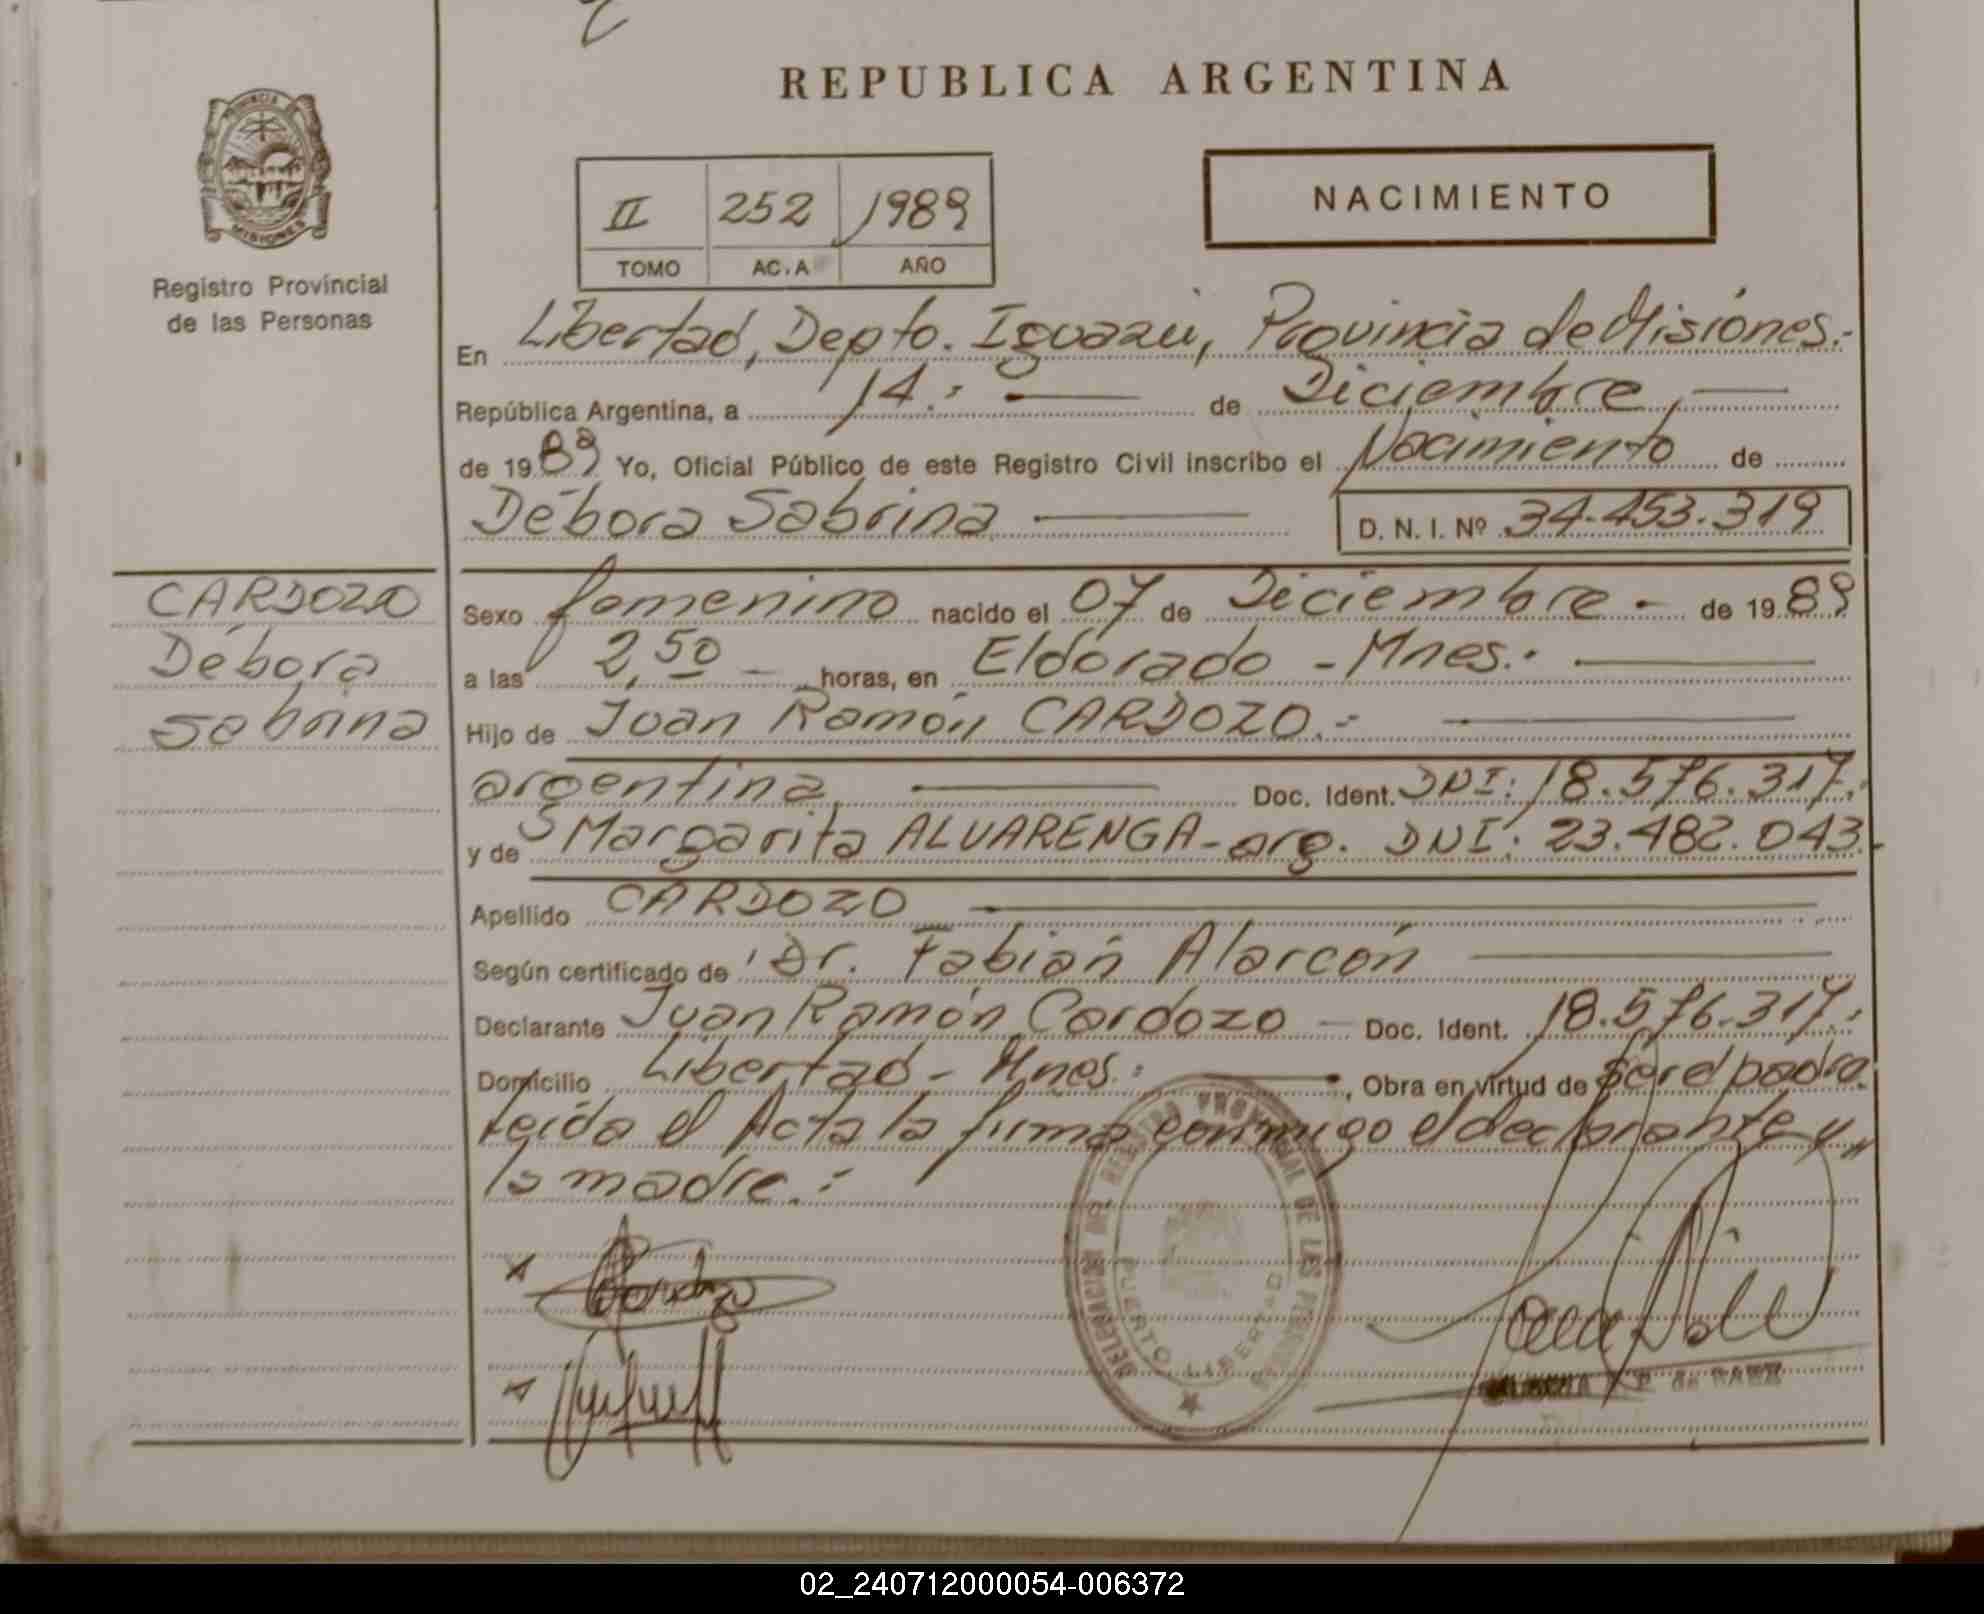 REPUBLICA ARGENTINA
PROVINCIA DE
MISIONES
Registro Provincial
de las Personas
II 252 1989
TOMO AC.A AÑO
NACIMIENTO
En Libertad, Depto. Iguazú, Provincia de Misiones.-
República Argentina, a 14.- de Diciembre,
de 1989 Yo, Oficial Público de este Registro Civil inscribo el Nacimiento de
Débora Sabrina D. N. I. Nº 34.453.319
CARDOZO
Débora
Sabrina
Sexo femenino nacido el 07 de Diciembre - de 1989
a las 2,50 - horas, en Eldorado - Mnes.-
Hijo de Juan Ramón CARDOZO.-
argentina Doc. Ident. DNI: 18.576.317.-
y de Margarita ALVARENGA - arg. DNI: 23.482.043.-
Apellido CARDOZO
Según certificado de Dr. Fabián Alarcón
Declarante Juan Ramón Cardozo - Doc. Ident. 18.576.317.-
Domicilio Libertad - Mnes.- , Obra en virtud de ser el padre.
Leída el Acta la firma conmigo el declarante y
la madre.-
DELEGACION DEL REGISTRO PROVINCIAL DE LAS PERSONAS
PUERTO LIBERTAD
Cardozo
02_240712000054-006372